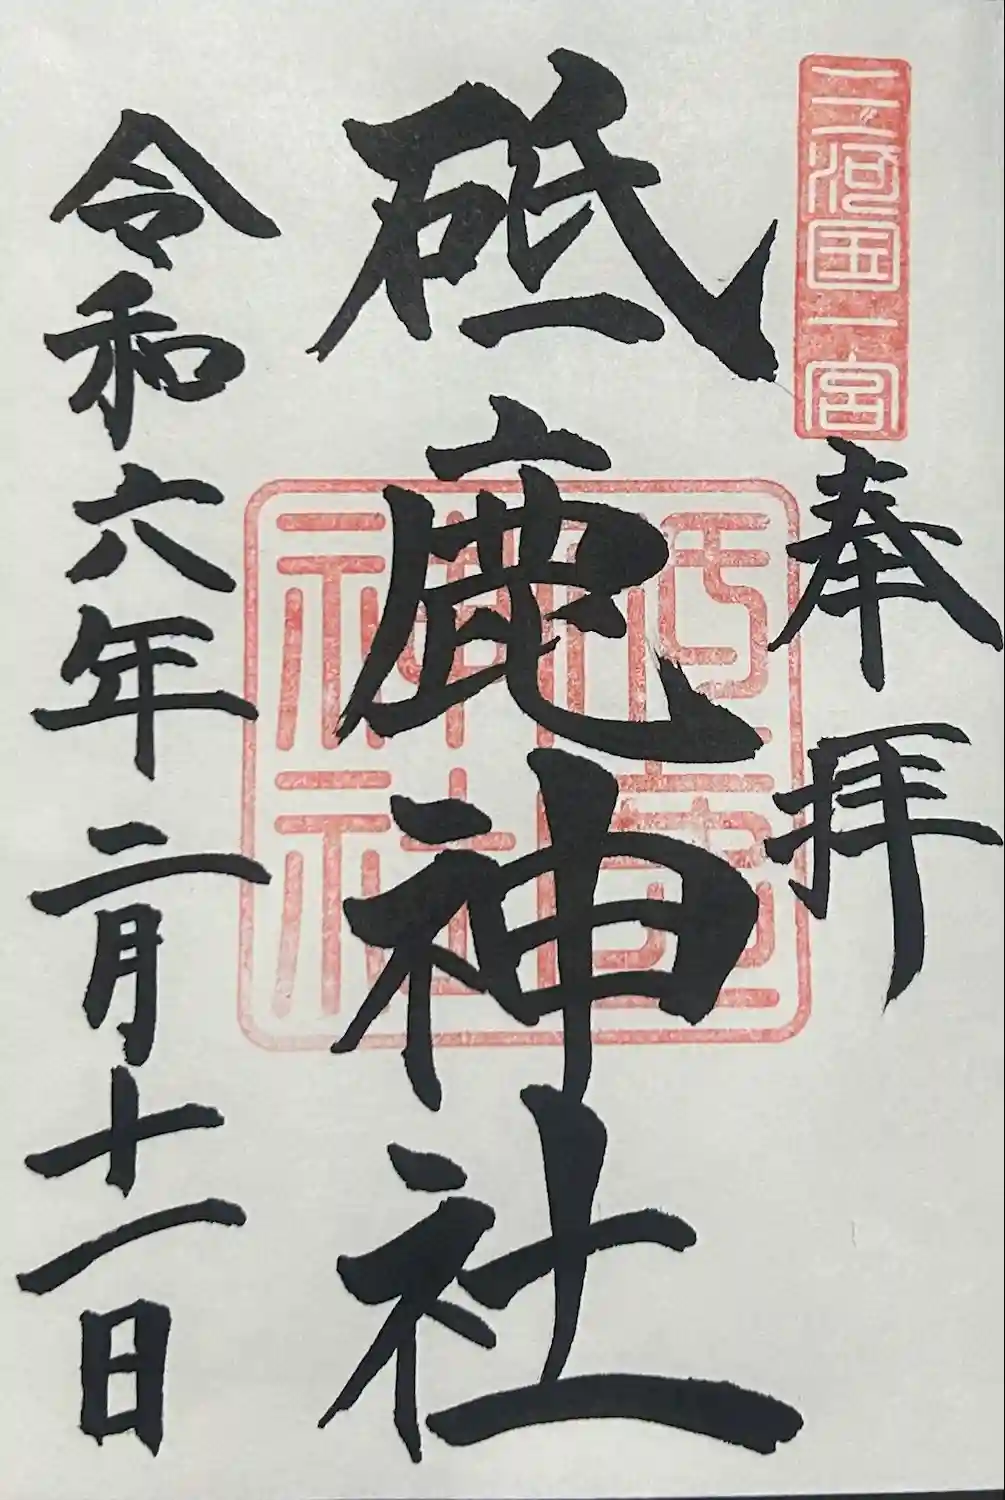 三河国一宮
奉拝
砥鹿神社
砥鹿神社
令和六年二月十一日